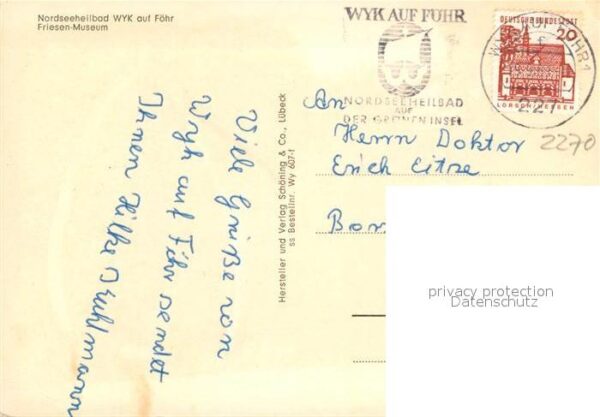 Nordseeheilbad WYK auf Föhr
Friesen-Museum
WYK AUF FÖHR
NORDSEEHEILBAD
AUF
DER GRÜNEN INSEL
DEUTSCHE BUNDESPOST
20
LORSCH/HESSEN
227
2270
An
Herrn Doktor
Erich Eitze
Bon
Viele Grüße von
Wyk auf Föhr sendet
Ihnen Hilke
Hersteller und Verlag Schöning & Co., Lübeck
ss Bestellnr. Wy 607-f
privacy protection
Datenschutz